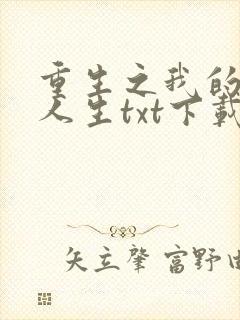 重生之我的
人生txt下载
矢立肇 富野由